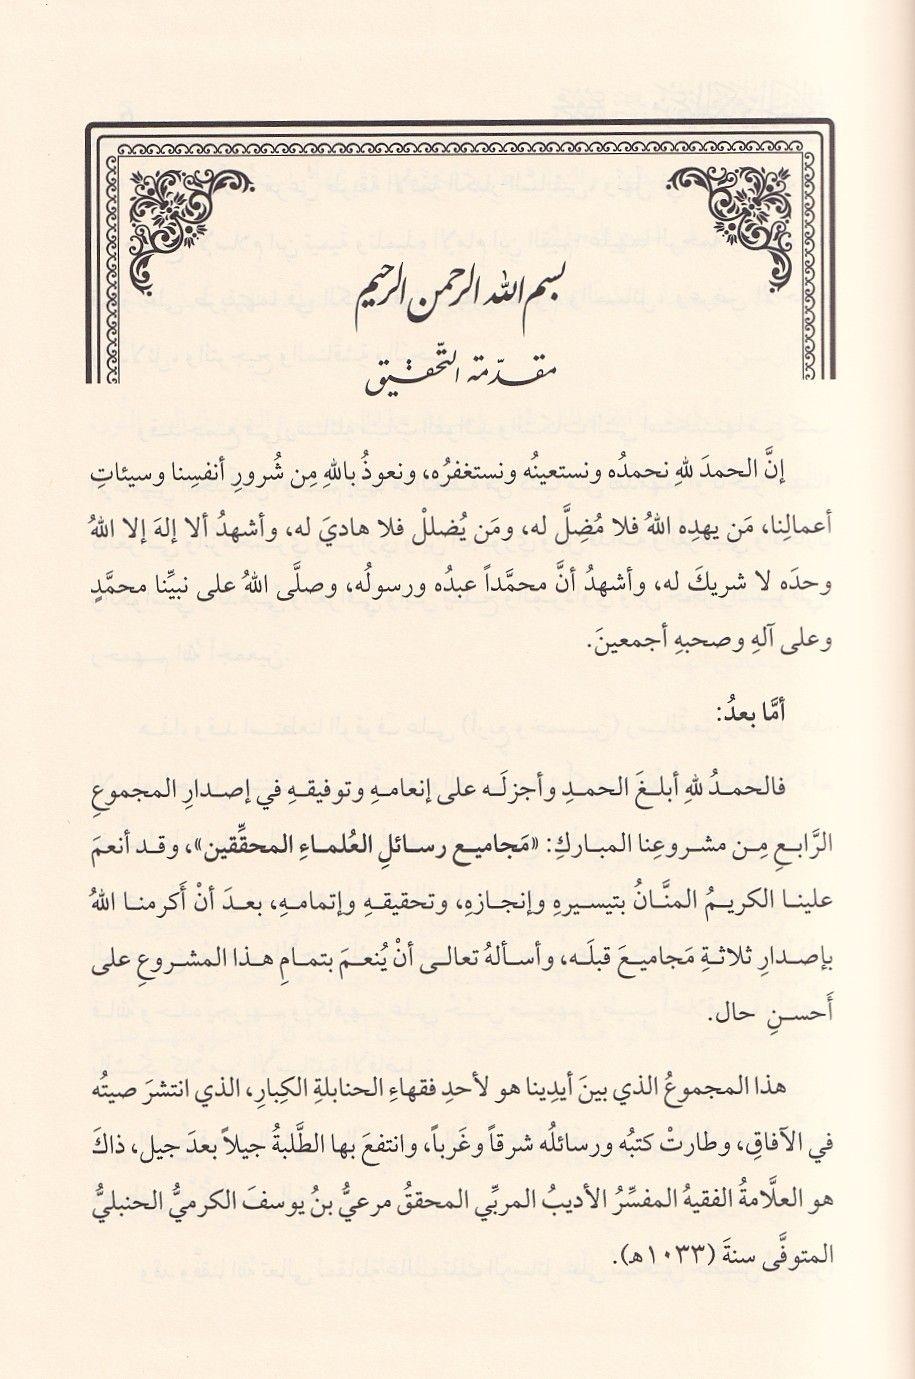 بسم الله الرحمن الرحيم
مقدّمة التّحقيق
إنَّ الحمدَ للهِ نحمدُه ونستعينُه ونستغفرُه، ونعوذُ باللهِ مِن شُرورِ أنفسِنا وسيئاتِ
أعمالِنا، مَن يهدِه اللهُ فلا مُضِلَّ له، ومَن يُضللْ فلا هاديَ له، وأشهدُ ألا إلهَ إلا اللهُ
وحدَه لا شريكَ له، وأشهدُ أنَّ محمَّداً عبدُه ورسولُه، وصلَّى اللهُ على نبيِّنا محمَّدٍ
وعلى آلهِ وصحبهِ أجمعينَ.
أمَّا بعدُ:
فالحمدُ للهِ أبلغَ الحمدِ وأجزلَه على إنعامهِ وتوفيقهِ في إصدارِ المجموعِ
الرَّابعِ مِن مشروعِنا المباركِ: «مَجاميع رسائلِ العُلماءِ المحقِّقين»، وقد أنعمَ
علينا الكريمُ المنَّانُ بتيسيرهِ وإنجازهِ، وتحقيقهِ وإتمامهِ، بعدَ أنْ أَكرمنا اللهُ
بإصدارِ ثلاثةِ مَجاميعَ قبلَه، وأسألهُ تعالى أنْ يُنعمَ بتمامِ هذا المشروعِ على
أَحسنِ حال.
هذا المجموعُ الذي بينَ أيدِينا هو لأحدِ فقهاءِ الحنابلةِ الكِبارِ، الذي انتشرَ صيتُه
في الآفاقِ، وطارتْ كتبُه ورسائلُه شرقاً وغَرباً، وانتفعَ بها الطَّلبةُ جيلاً بعدَ جيل، ذاكَ
هو العلَّامةُ الفقيهُ المفسِّرُ الأديبُ المربِّي المحققُ مرعيُّ بنُ يوسفَ الكرميُّ الحنبليُّ
المتوفَّى سنةَ (١٠٣٣هـ).